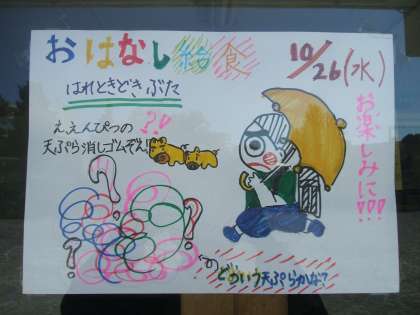 おはなし給食
10/26(水)
はれときどきぶた
ええんぴつの
天ぷら消しゴムぞん!!
?!
お楽しみに!!!
?
?
?
どういう天ぷらかな?